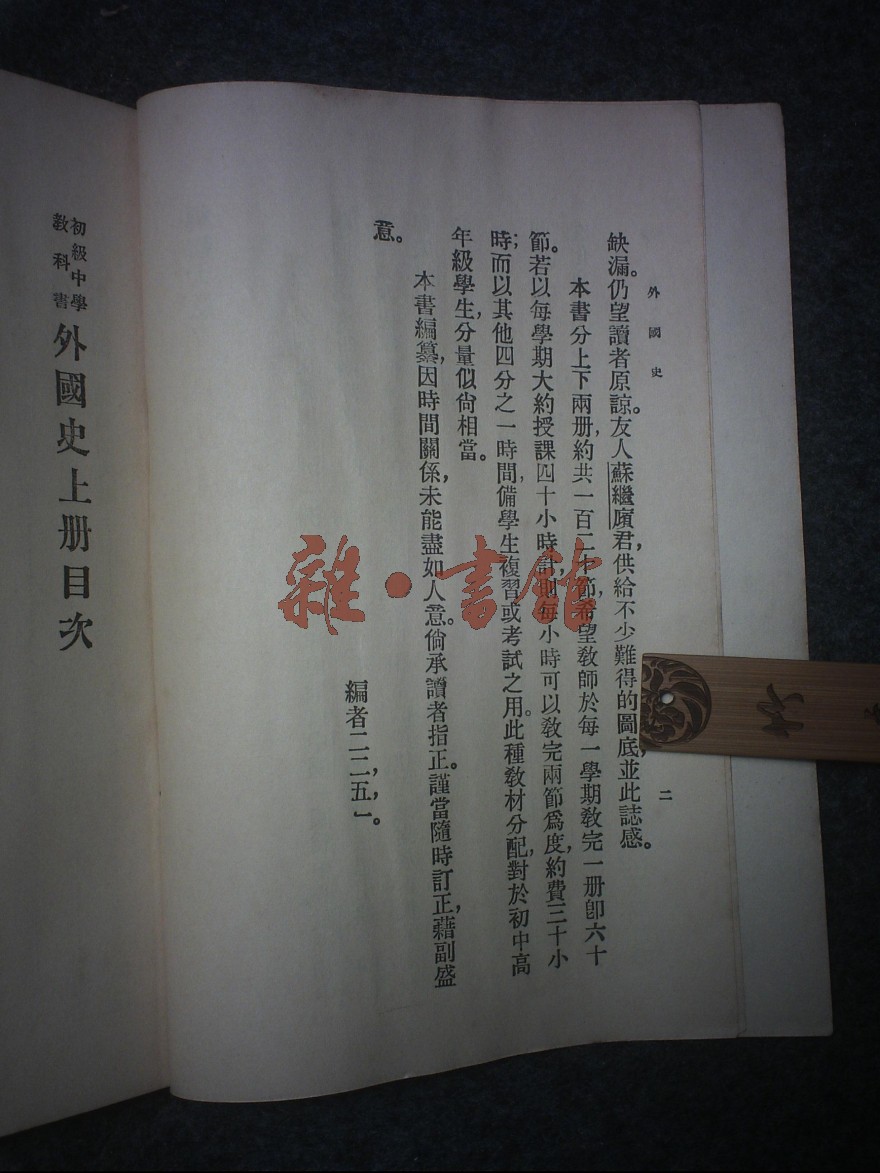 外國史
二
缺漏。仍望讀者原諒。友人蘇繼廎君,供給不少難得的圖底,並此誌感。
本書分上下兩册,約共一百二十節,希望教師於每一學期教完一册,卽六十
節。若以每學期大約授課四十小時計,則每小時可以教完兩節爲度,約費三十小
時;而以其他四分之一時間,備學生複習或考試之用。此種教材分配,對於初中高
年級學生,分量似尙相當。
本書編纂,因時間關係,未能盡如人意。倘承讀者指正。謹當隨時訂正,藉副盛
意。
編者二二,五,一。
初級中學
教科書
外國史上册目次
雜·書館